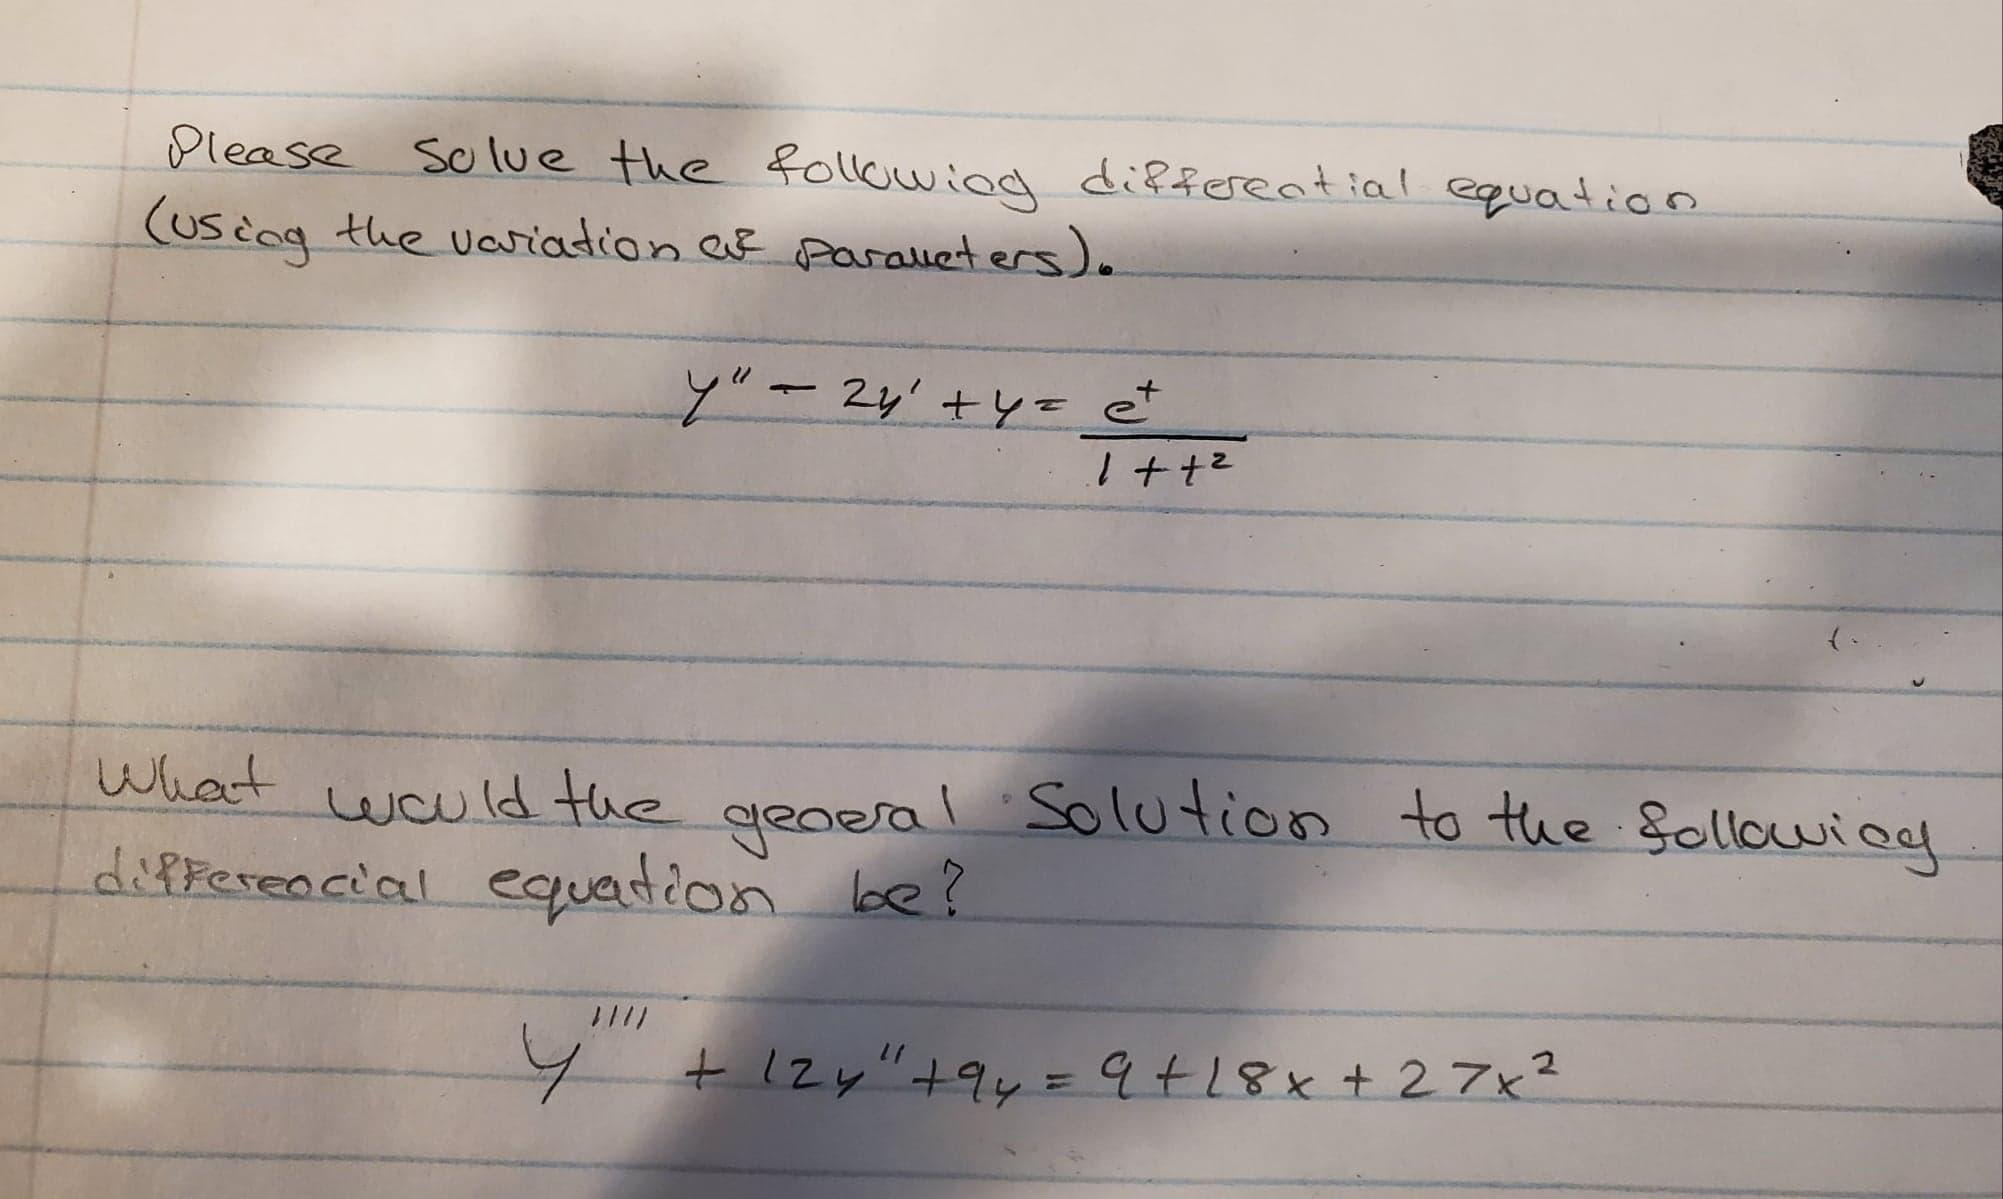 Please solve the following differential equation
(using the variation of parameters).
y'' - 2y' + y = e^t
1 + t²
What would the general solution to the following
differencial equation be?
y'''' + 12y'' + 9y = 9 + 18x + 27x²